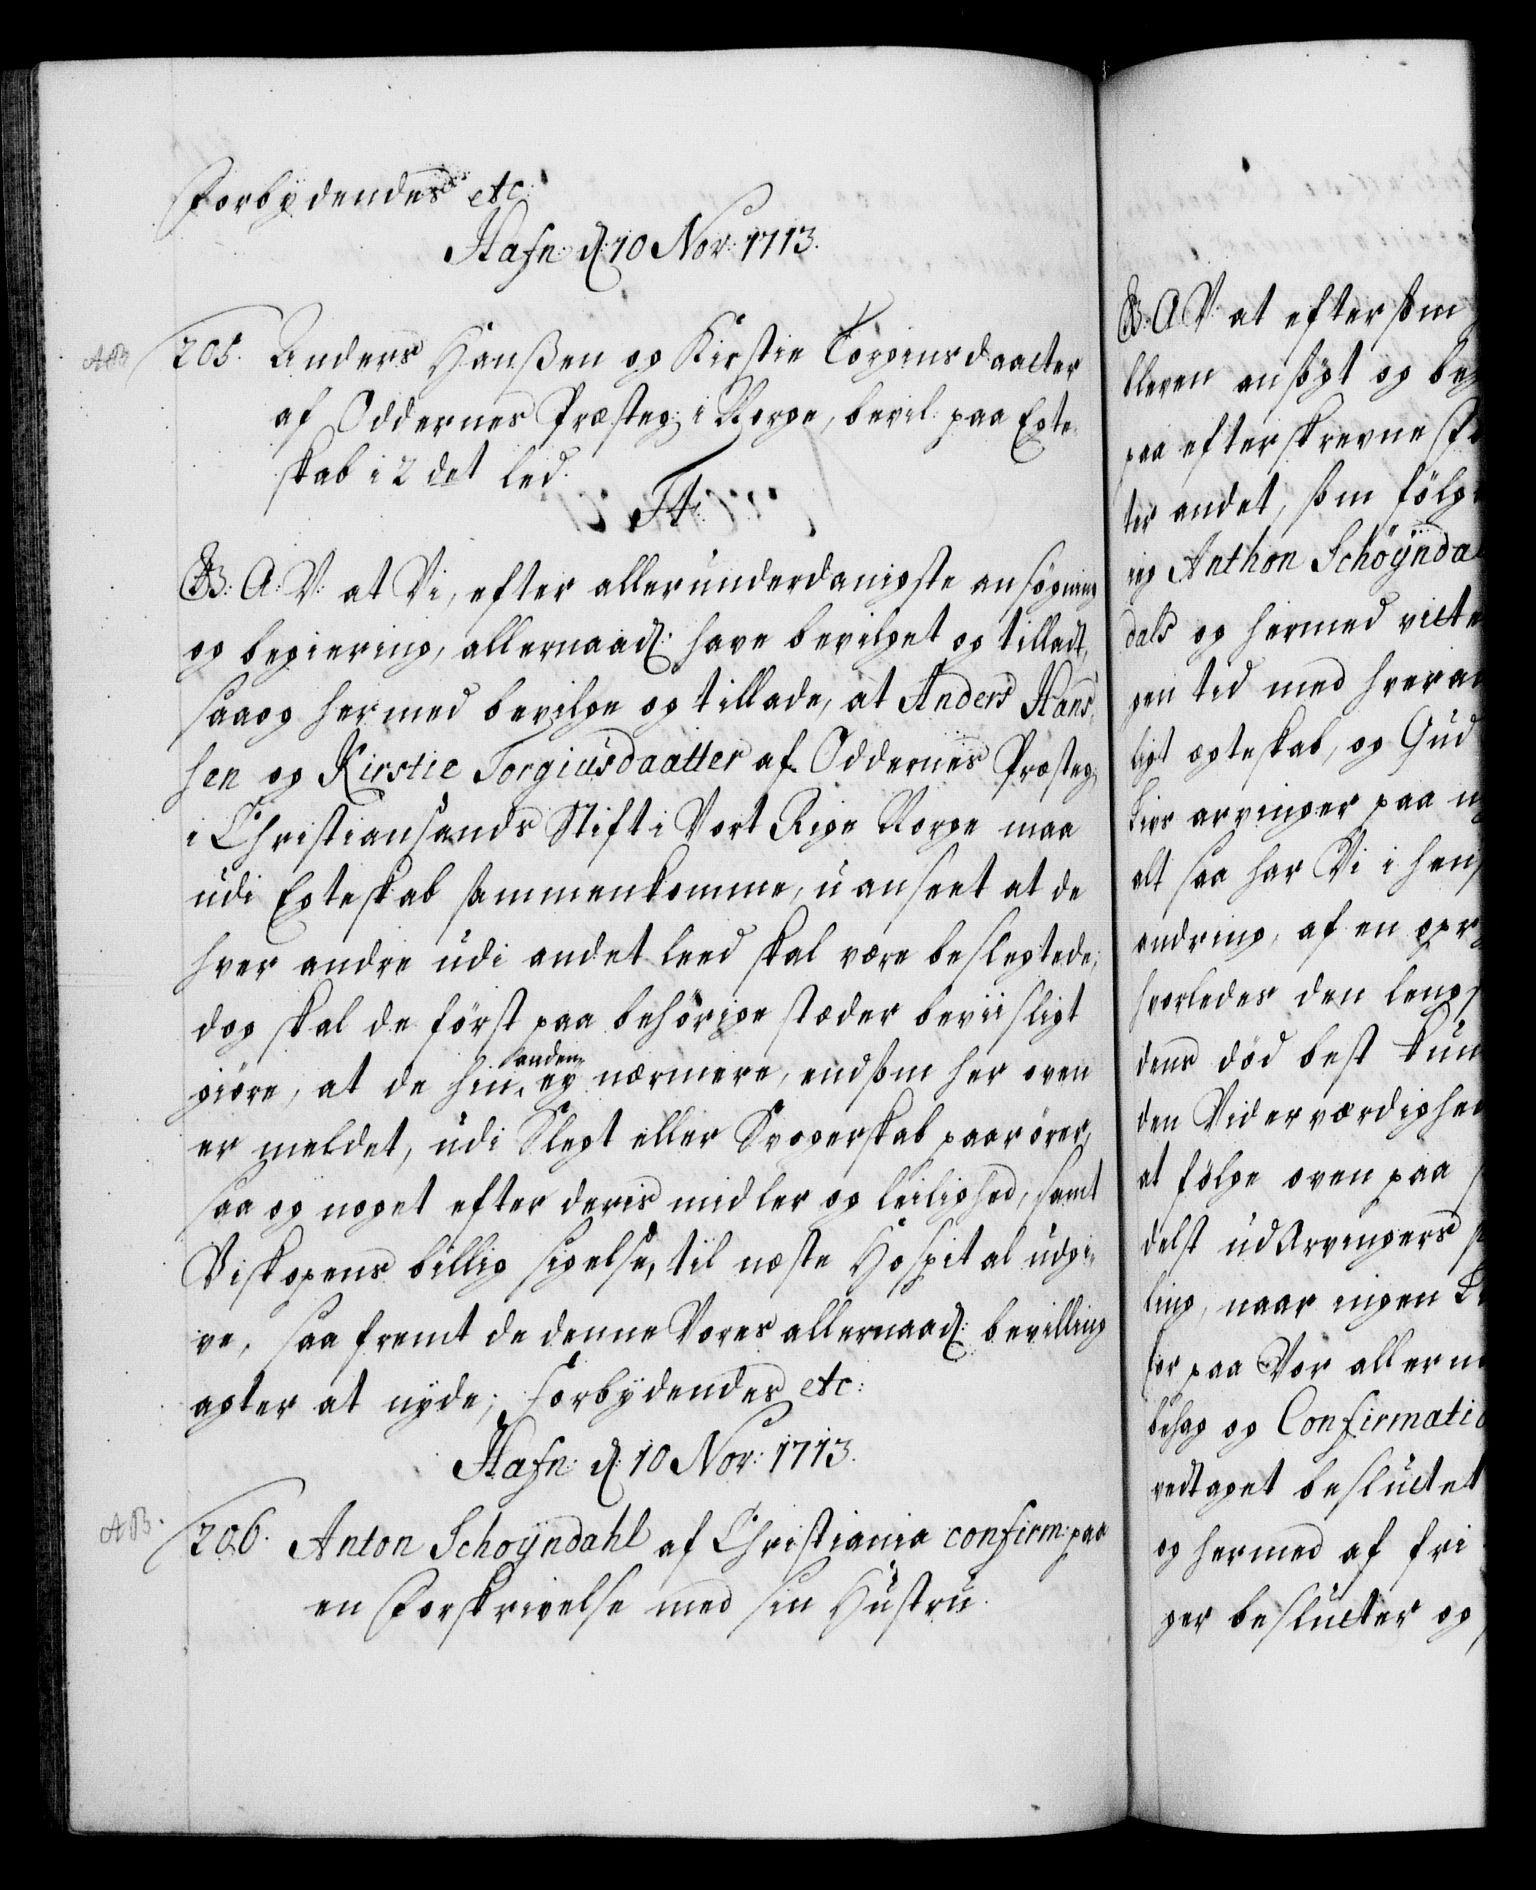 Forbydendes etc:
Hafn: d: 10 Nov: 1713.
AB 205. Anders Hanßen og Kirstie Torgiusdaatter
af Oddernes Præsteg: i Norge, bevil: paa Egte
skab i 2det led.
Ft:
G: A: V: at Vi, efter allerunderdanigste ansøgning
og begiering, allernaad: have bevilget og tilladt,
saa og hermed bevilge og tillade, at Anders Hans
sen og Kirstie Torgiusdaatter af Oddernes Præsteg:
i Christiansands Stift i Vort Rige Norge maa
udi Egteskab sammenkomme, uanseet at de
hver andre udi andet leed skal være beslegtede;
dog skal de først paa behørige stæder beviisligt
giøre, at de hin anden ey nærmere, end som her oven
er meldet, udi Slegt eller Svogerskab paarører,
saa og noget efter deris midler og leilighed, samt
Biskopens billig sigelse, til næste Hospital udgi
ve, saa fremt de denne Vores allernaad: bevilling
agter at nyde; Forbydendes etc:
Hafn: d: 10 Nov: 1713.
AB. 206. Anton Schoyndahl af Christiania confirm: paa
en Forskrivelse med sin Hustru.
G: A V: at eftersom
bleven ansøgt og beg
paa efterskrevne
ter andet, som følg
rig Anthon Schöÿnda
dals og hermed vitte
gen tid med hveran
ligt egteskab, og Gud
Livs arvinger paa
alt saa har Vi i hen
andring, af en
hvorledes den leng
dens död best kun
den Viderværdighe
at følge oven paa
delst udArvingers
ling, naar ingen
for paa Vor allern
behag og Confirmatio
vedtaget besluttet
og hermed af fri
ger beslutter og